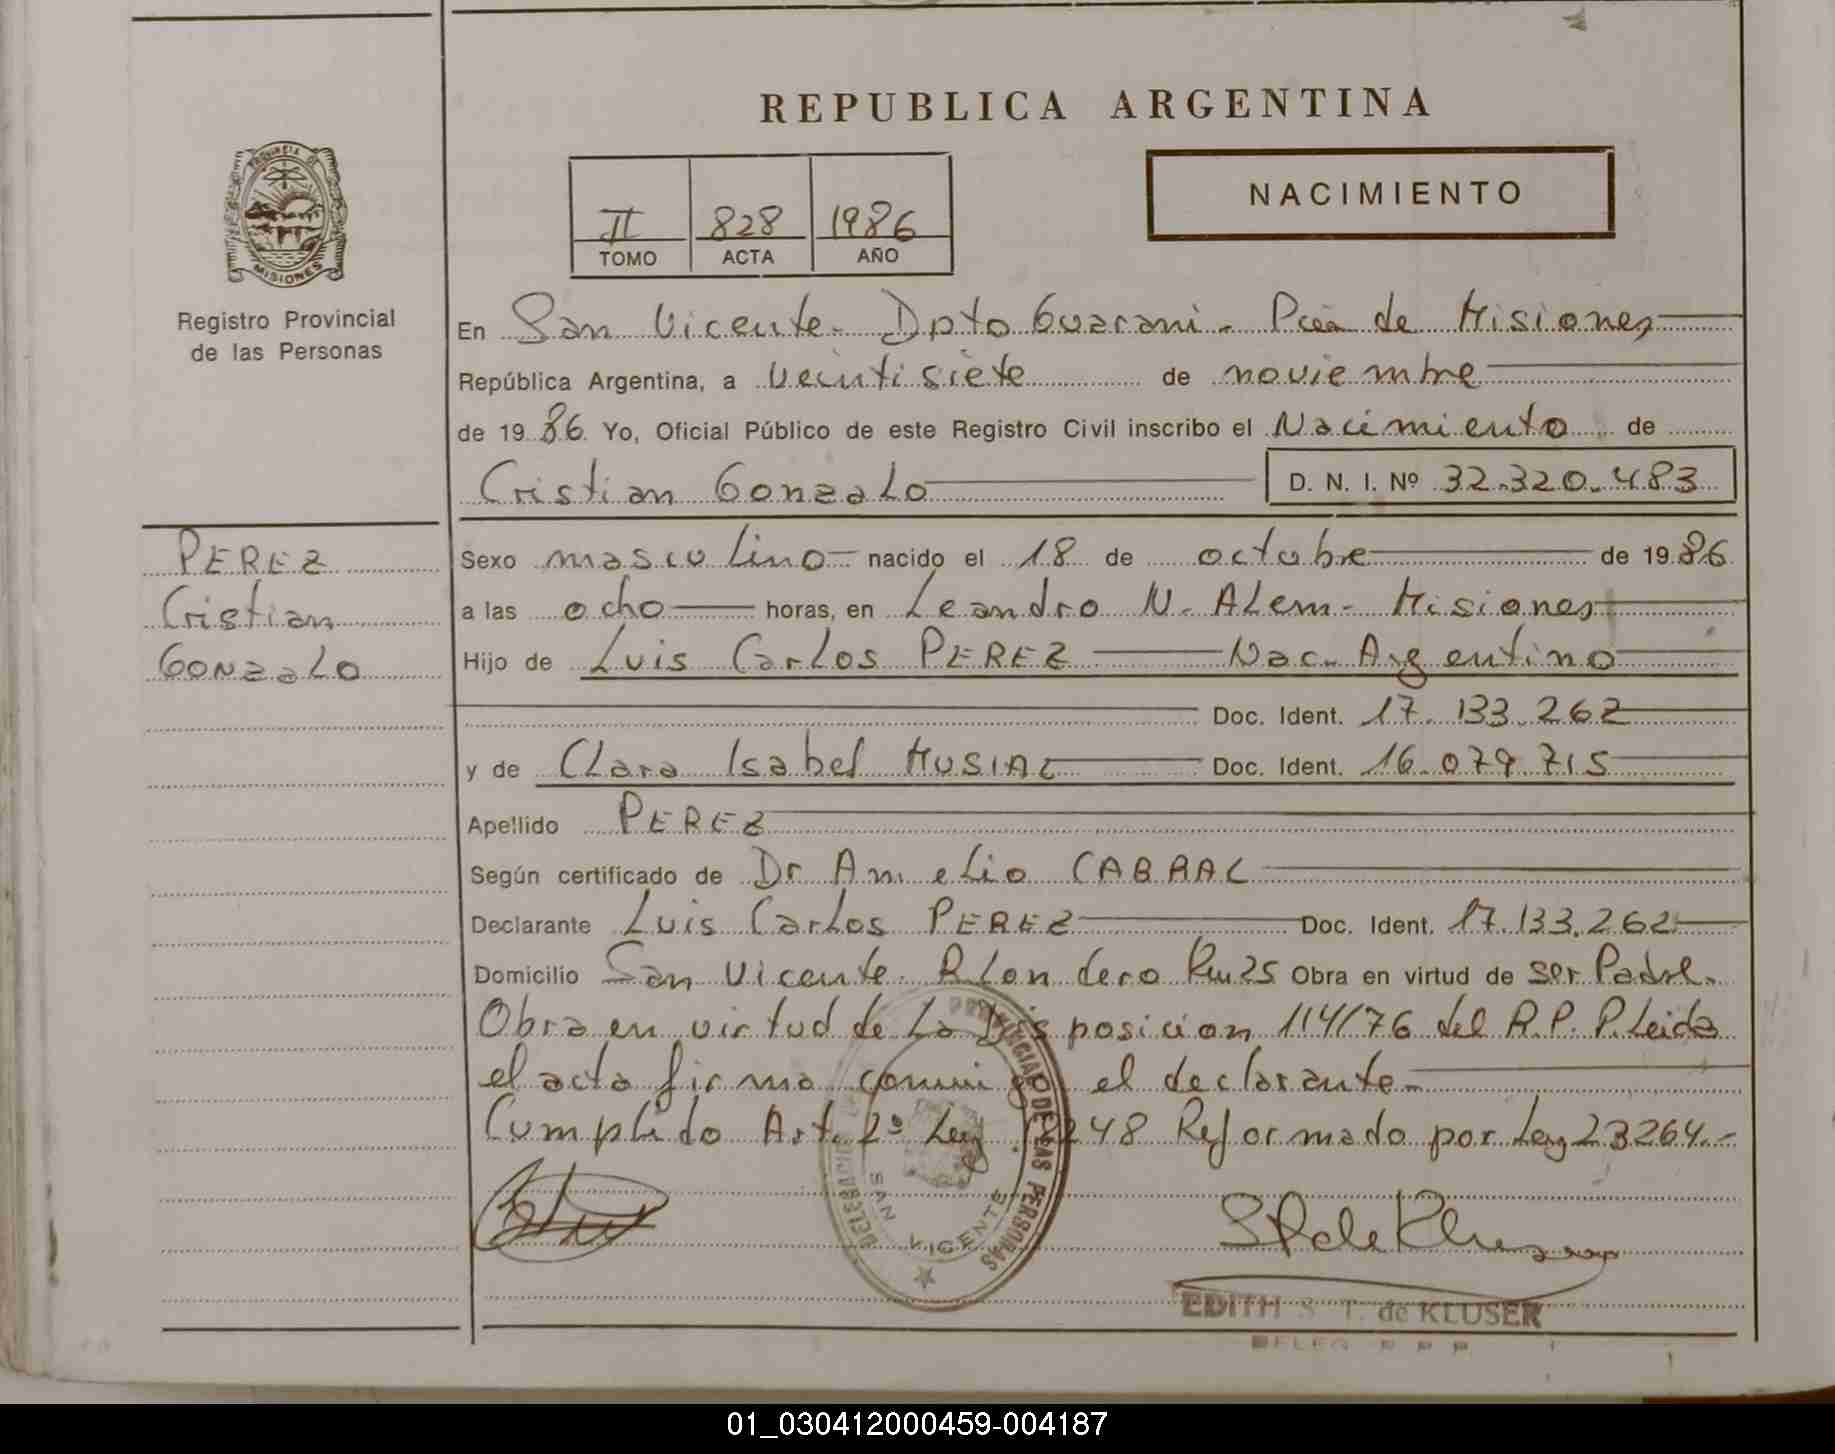 REPUBLICA ARGENTINA
PROVINCIA DE
MISIONES
Registro Provincial
de las Personas
II 828 1986
TOMO ACTA AÑO
NACIMIENTO
En San Vicente - Dpto Guarani - Pcia de Misiones
República Argentina, a veintisiete de noviembre
de 1986 Yo, Oficial Público de este Registro Civil inscribo el Nacimiento de
Cristian Gonzalo D. N. I. Nº 32.320.483
PEREZ
Cristian
Gonzalo
Sexo masculino nacido el 18 de octubre de 1986
a las ocho horas, en Leandro N. Alem - Misiones
Hijo de Luis Carlos PEREZ Nac. Argentino
Doc. Ident. 17.133.262
y de Clara Isabel MUSIAL Doc. Ident. 16.079.715
Apellido PEREZ
Según certificado de Dr Amelio CABRAL
Declarante Luis Carlos PEREZ Doc. Ident. 17.133.262
Domicilio San Vicente - Rlon dero Km 25 Obra en virtud de ser Padre.
Obra en virtud de la Disposicion 114/76 del R.P.P. Leida
el acta firma conmigo el declarante -
Cumplido Art. 2º Ley 18248 Reformado por Ley 23264.-
DELEGACION PROVINCIAL DE LAS PERSONAS
SAN VICENTE
EDITH S. T. de KLUSER
DELEG. R. P. P.
01_030412000459-004187